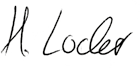 H. Locler